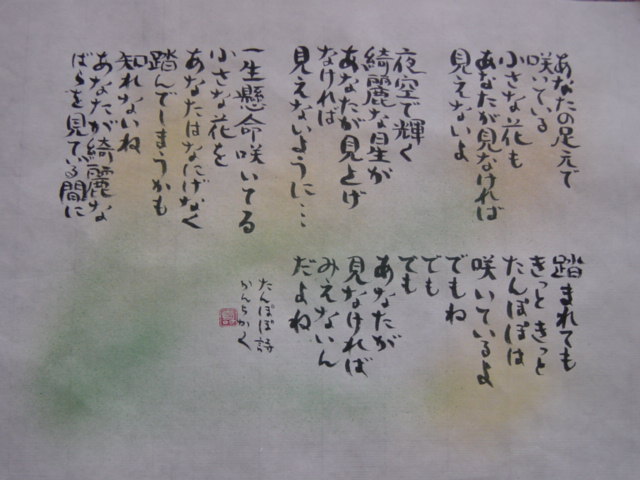 あなたの足元で
咲いている
小さな花も
あなたが見なければ
見えないよ
夜空で輝く
綺麗な星が
あなたが見上げ
なければ
見えないように…
一生懸命咲いてる
小さな花を
あなたはなにげなく
踏んでしまうかも
知れないね
あなたが綺麗な
ばらを見ている間に
踏まれても
きっと きっと
たんぽぽは
咲いているよ
でもね
でも
でも
あなたが
見なければ
みえないん
だよね
たんぽぽ詩